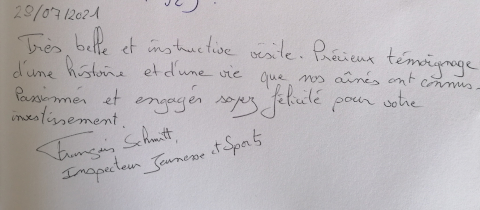 23/07/2021
Très belle et instructive visite. Précieux témoignage
d'une histoire et d'une vie que nos aînés ont connus.
Passionnés et engagés soyez félicité pour votre
investissement.
François Schmitt,
Inspecteur Jeunesse et Sports